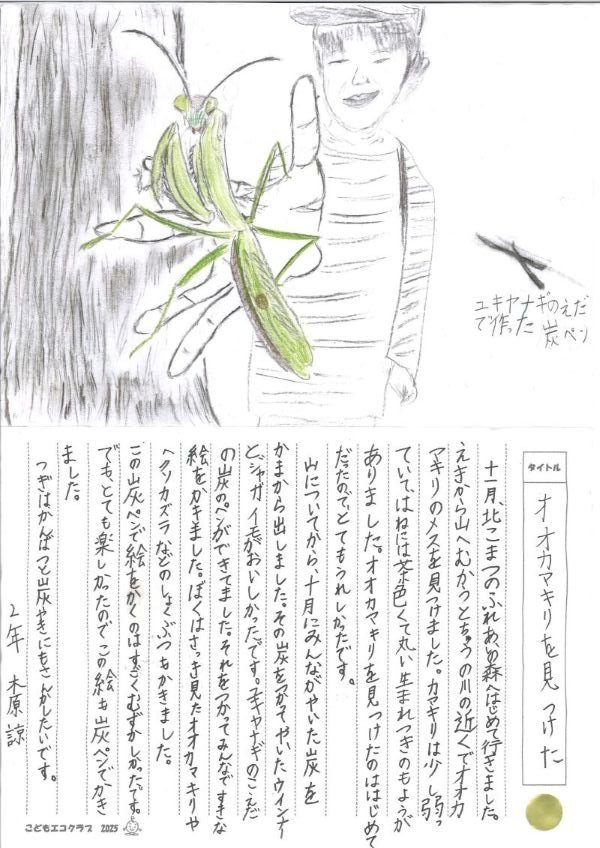 ユキヤナギのえだ
で作った 炭ペン
タイトル
オオカマキリを見つけた
十一月、北こまつのふれあいの森へはじめて行きました。
えきから山へむかうとちゅうの川の近くでオオカ
マキリのメスを見つけました。カマキリは少し弱っ
ていて、はねには茶色くて丸い生まれつきのもようが
ありました。オオカマキリを見つけたのははじめて
だったので、とてもうれしかったです。
山についてから、十月にみんながやいた炭を
かまから出しました。その炭をつかってやいたウインナー
とジャガイモがおいしかったです。ユキヤナギのこえだ
の炭のペンができてました。それをつかってみんなですきな
絵をかきました。ぼくはさっき見たオオカマキリや
ヘクソカズラなどのしょくぶつもかきました。
この炭ペンで絵をかくのはすごくむずかしかったです。
でも、とても楽しかったのでこの絵も炭ペンでかき
ました。
つぎはかんばつと炭やきにもさんかしたいです。
2年 木原 諒
こどもエコクラブ 2025